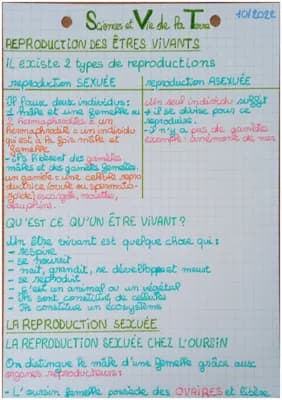 Sciences et Vie de la Terre
10/2022
REPRODUCTION DES ÊTRES VIVANTS
il existe 2 types de reproductions
reproduction SEXUÉE
reproduction ASEXUÉE
Il faut deux individus :
1 mâle et une femelle ou
2 hermaphrodites = un
hermaphrodite = un individu
qui est à la fois mâle et
femelle
- ils libèrent des gamètes
mâles et des gamètes femelles.
un gamète = une cellule repro
ductrice (ovule ou spermato-
zoïde) escargots, mouettes,
dauphins.
Un seul individu suffit
→ il se divise pour se
reproduire.
- il n'y a pas de gamètes
exemple : anémone de mer
QU'EST CE QU'UN ÊTRE VIVANT ?
Un être vivant est quelque chose qui :
- respire
- se nourrit
- nait, grandit, se développe et meurt
- se reproduit
- c'est un animal ou un végétal
- Ils sont constitué de cellules
- Ils constitue un écosystème
LA REPRODUCTION SEXUÉE
LA REPRODUCTION SEXUÉE CHEZ L'OURSIN
On distingue le mâle d'une femelle grâce aux
organes reproducteurs :
- L'oursin femelle possède des OVAIRES et libère